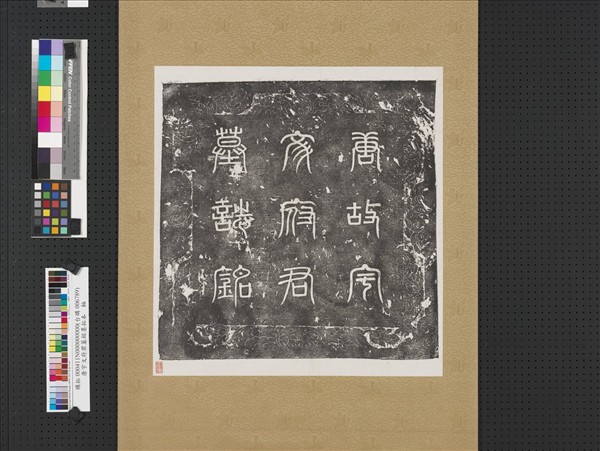 唐故宇
文府君
墓誌銘